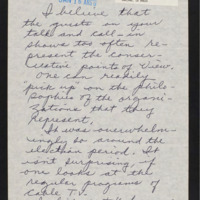 I believe that
the guests on your
talk and call-in
shows too often re-
present the conser-
vative point of view.
One can readily
"pick up" on the philo-
sophies of the organi-
zations that they
represent.
It was overwhelm-
ingly so around the
election period. It
isn't surprising, if
one looks at the
regular programs of
cable T.V.